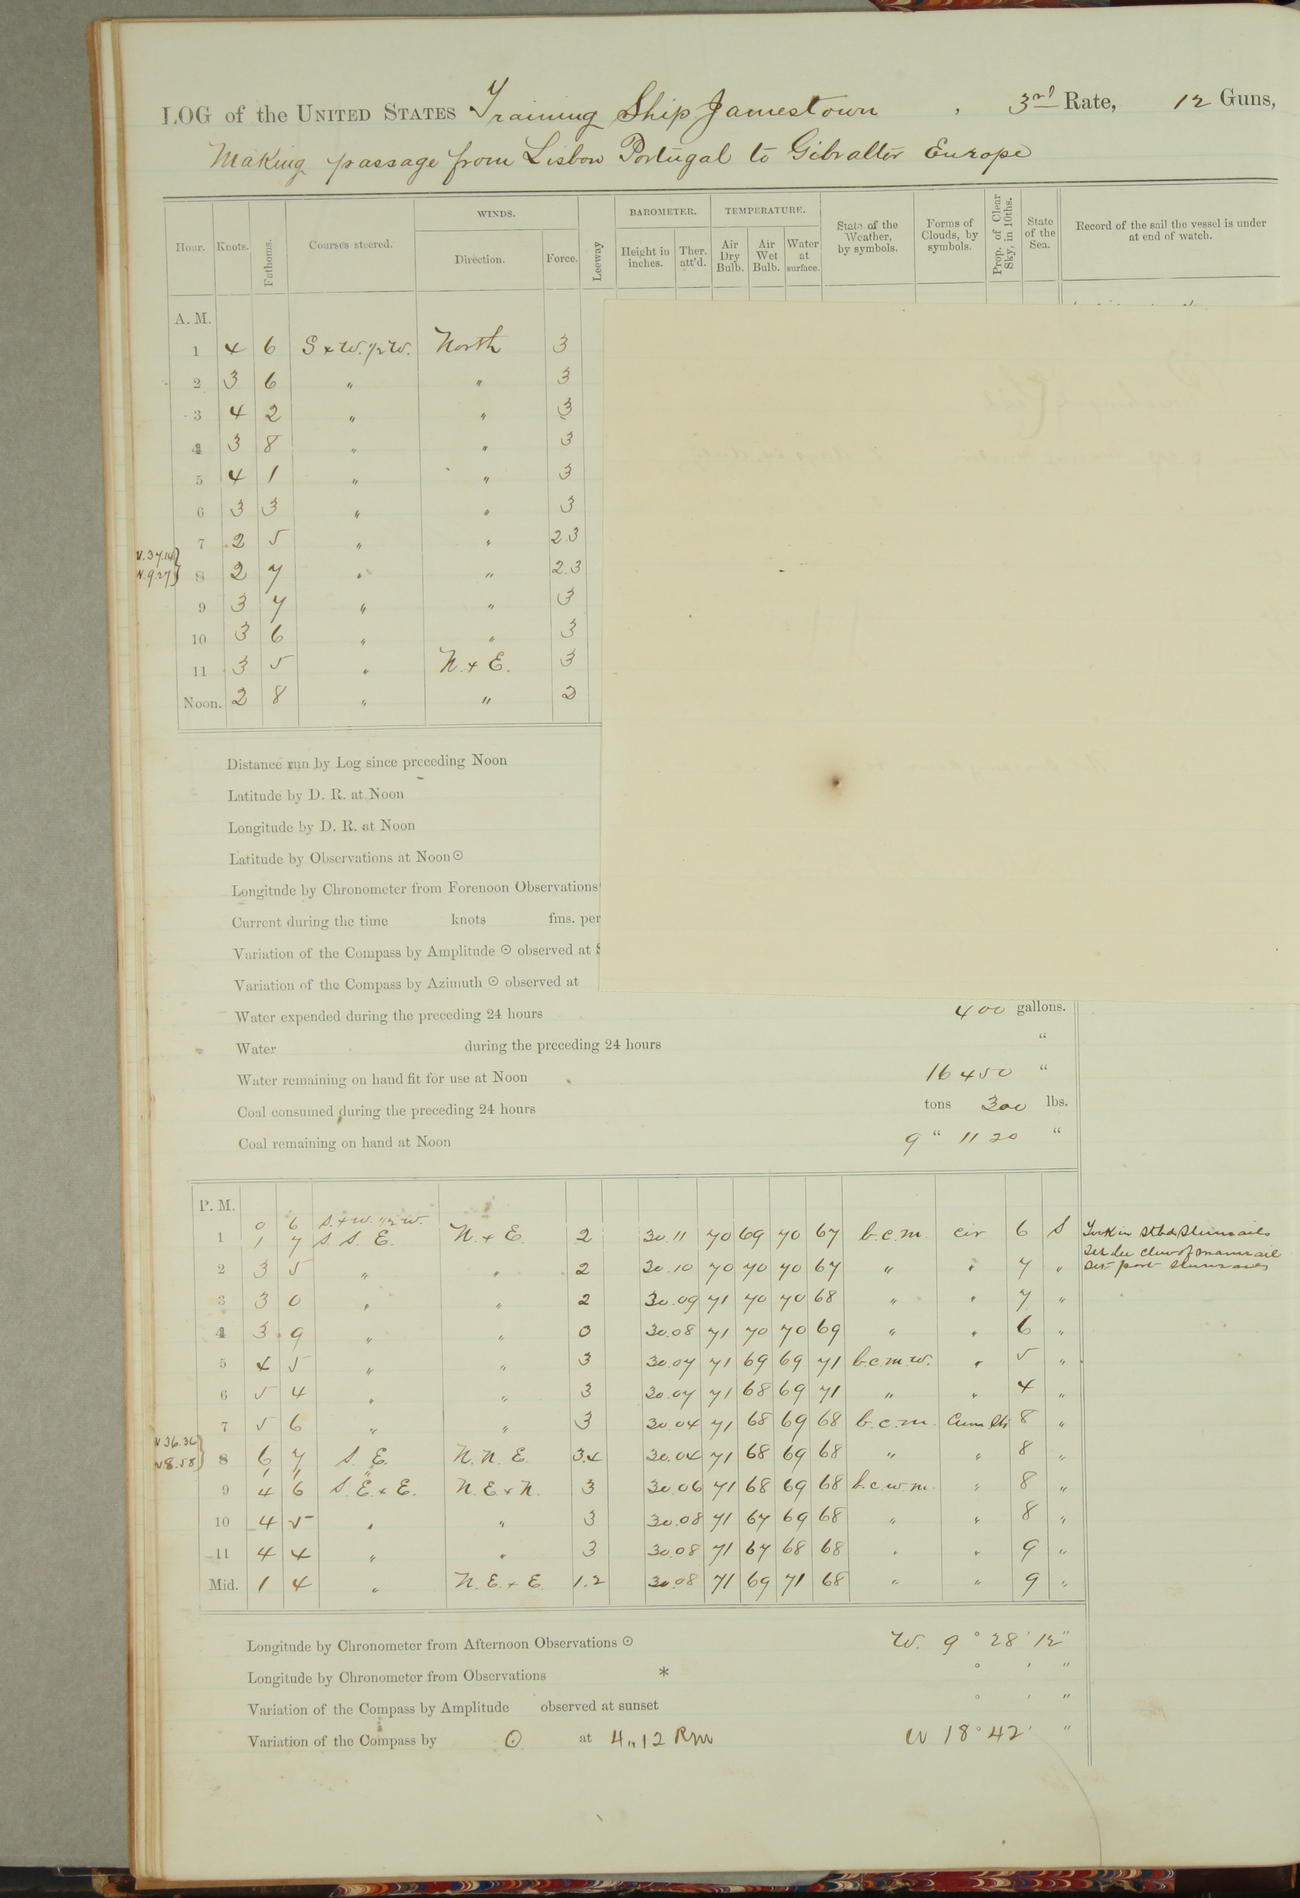 LOG of the UNITED STATES Training Ship Jamestown , 3rd Rate, 12 Guns,
Making passage from Lisbon Portugal to Gibralter Europe
Hour. Knots. Fathoms. Courses steered. WINDS. Direction. Force. Leeway BAROMETER. Height in inches. Ther. att'd. TEMPERATURE. Air Dry Bulb. Air Wet Bulb. Water at surface. State of the Weather, by symbols. Forms of Clouds, by symbols. Prop. of Clear Sky, in 10ths. State of the Sea. Record of the sail the vessel is under at end of watch.
A. M.
1 4 6 S x W. 1/2 W. North 3
2 3 6 " " 3
3 4 2 " " 3
4 3 8 " " 3
5 4 1 " " 3
6 3 3 " " 3
7 2 5 " " 2.3
N. 37.14
8 2 7 " " 2.3
W. 9.27
9 3 7 " " 3
10 3 6 " " 3
11 3 5 " N. x E. 3
Noon. 2 8 " " 2
Distance run by Log since preceding Noon
Latitude by D. R. at Noon
Longitude by D. R. at Noon
Latitude by Observations at Noon ☉
Longitude by Chronometer from Forenoon Observations
Current during the time knots fms. per
Variation of the Compass by Amplitude ☉ observed at
Variation of the Compass by Azimuth ☉ observed at
Water expended during the preceding 24 hours 400 gallons.
Water during the preceding 24 hours "
Water remaining on hand fit for use at Noon 16450 "
Coal consumed during the preceding 24 hours tons 300 lbs.
Coal remaining on hand at Noon 9 " 1120 "
P. M.
0 6 S. x W. 1/2 W.
1 1 7 S. S. E. N. x E. 2 30.11 70 69 70 67 b.c.m. cir 6 S Took in Stbd Stunsails
Set lee clew of mainsail
2 3 5 " " 2 30.10 70 70 70 67 " " 7 " Set port Stunsails
3 3 0 " " 2 30.09 71 70 70 68 " " 7 "
4 3 9 " " 0 30.08 71 70 70 69 " " 6 "
5 4 5 " " 3 30.07 71 69 69 71 b.c.m.w. " 5 "
6 5 4 " " 3 30.07 71 68 69 71 " " 4 "
7 5 6 " " 3 30.04 71 68 69 68 b.c.m. Cum Str 8 "
N 36.36
8 6 7 S. E. N. N. E. 3.4 30.04 71 68 69 68 " " 8 "
W 8.58
1 1 "
9 4 6 S. E. x E. N. E. x N. 3 30.06 71 68 69 68 b.c.w.m. " 8 "
10 4 5 " " 3 30.08 71 67 69 68 " " 8 "
11 4 4 " " 3 30.08 71 67 68 68 " " 9 "
Mid. 1 4 " N. E. x E. 1.2 30.08 71 69 71 68 " " 9 "
Longitude by Chronometer from Afternoon Observations ☉ W. 9 ° 28 ' 12 "
Longitude by Chronometer from Observations * ° ' "
Variation of the Compass by Amplitude observed at sunset ° ' "
Variation of the Compass by ☉ at 4,,12 Pm W 18 ° 42 ' "